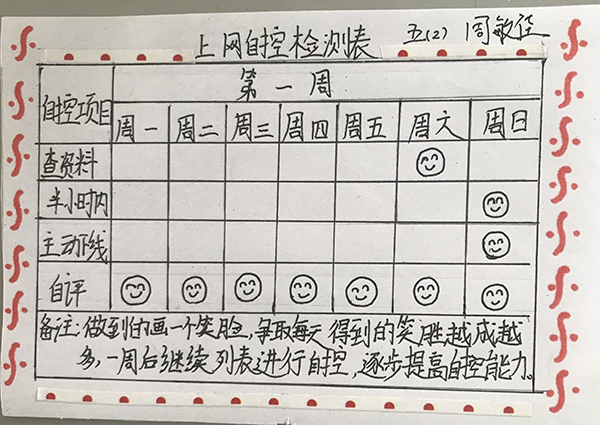 上网自控检测表 五(2) 周敏径
第一周
自控项目 周一 周二 周三 周四 周五 周六 周日
查资料
半小时内
主动下线
自评
备注:做到的画一个笑脸,争取每天得到的笑脸越成越
多,一周后继续列表进行自控,逐步提高自控能力。